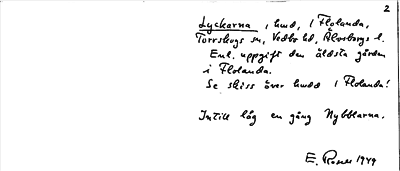 2
Lyckarna, hmd, i Flolanda,
Torrskogs sn, Vedbo hd, Älvsborgs l.
Enl. uppgift den äldsta gården
i Flolanda.
Se skiss över hmdd i Flolanda!
Intill låg en gång Nybblarna.
E. Rosen 1949